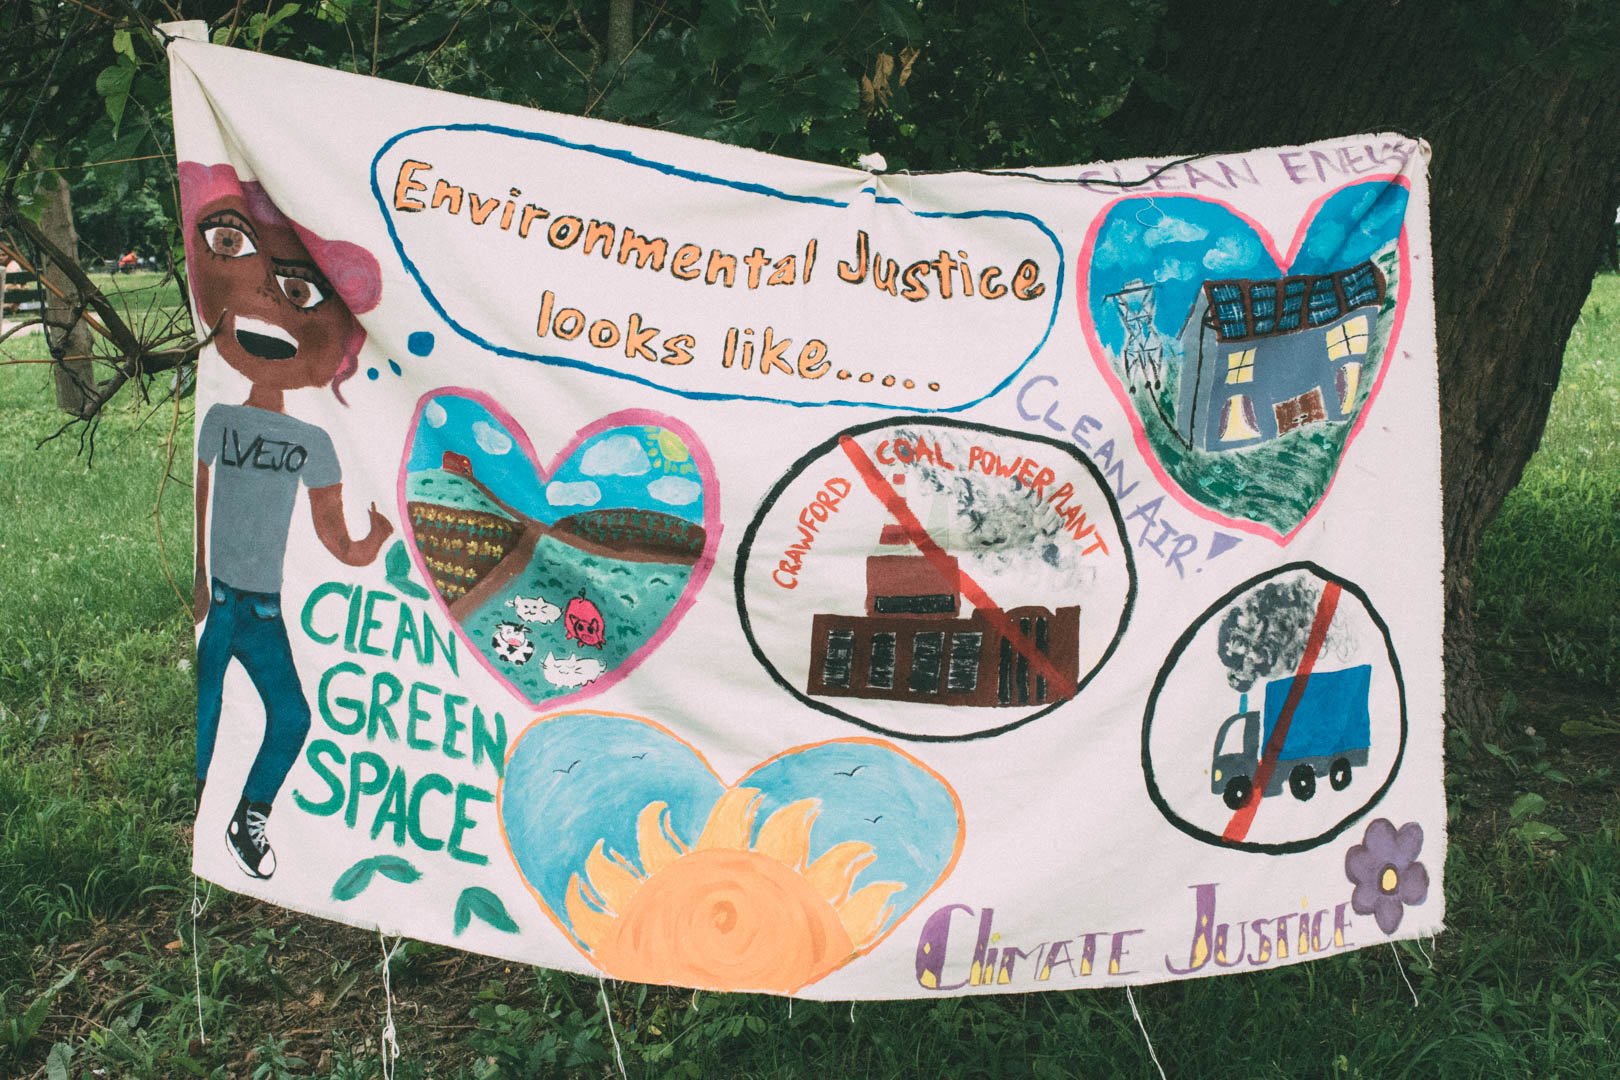 Environmental Justice
looks like.....
LVEJO
CLEAN
GREEN
SPACE
CRAWFORD COAL POWER PLANT
CLEAN ENERGY
CLEAN AIR!
CLIMATE JUSTICE